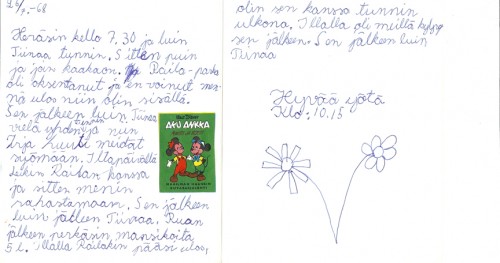 26/7-68
Heräsin kello 7.30 ja luin
Tiinaa tunnin. Sitten puin
ja join kaakaon. Raila-parka
oli oksentanut ja en voinut men-
nä ulos niin olin sisällä.
Sen jälkeen luin Tiinaa
vielä tunnin
Irja huusi meidät
syömään. Iltapäivällä
leikin Railan kanssa
ja sitten menin
ratsastamaan. Sen jälkeen
luin jälleen Tiinaa. Ruan
jälkeen perkasin mansikoita
5 l. Illalla Railakin pääsi ulos,
Walt Disney
AKU ANKKA
olin sen kanssa tunnin
ulkona. Illalla oli meillä kylpy
sen jälkeen. Sen jälkeen luin
Tiinaa
Hyvää yötä
Klo: 10.15